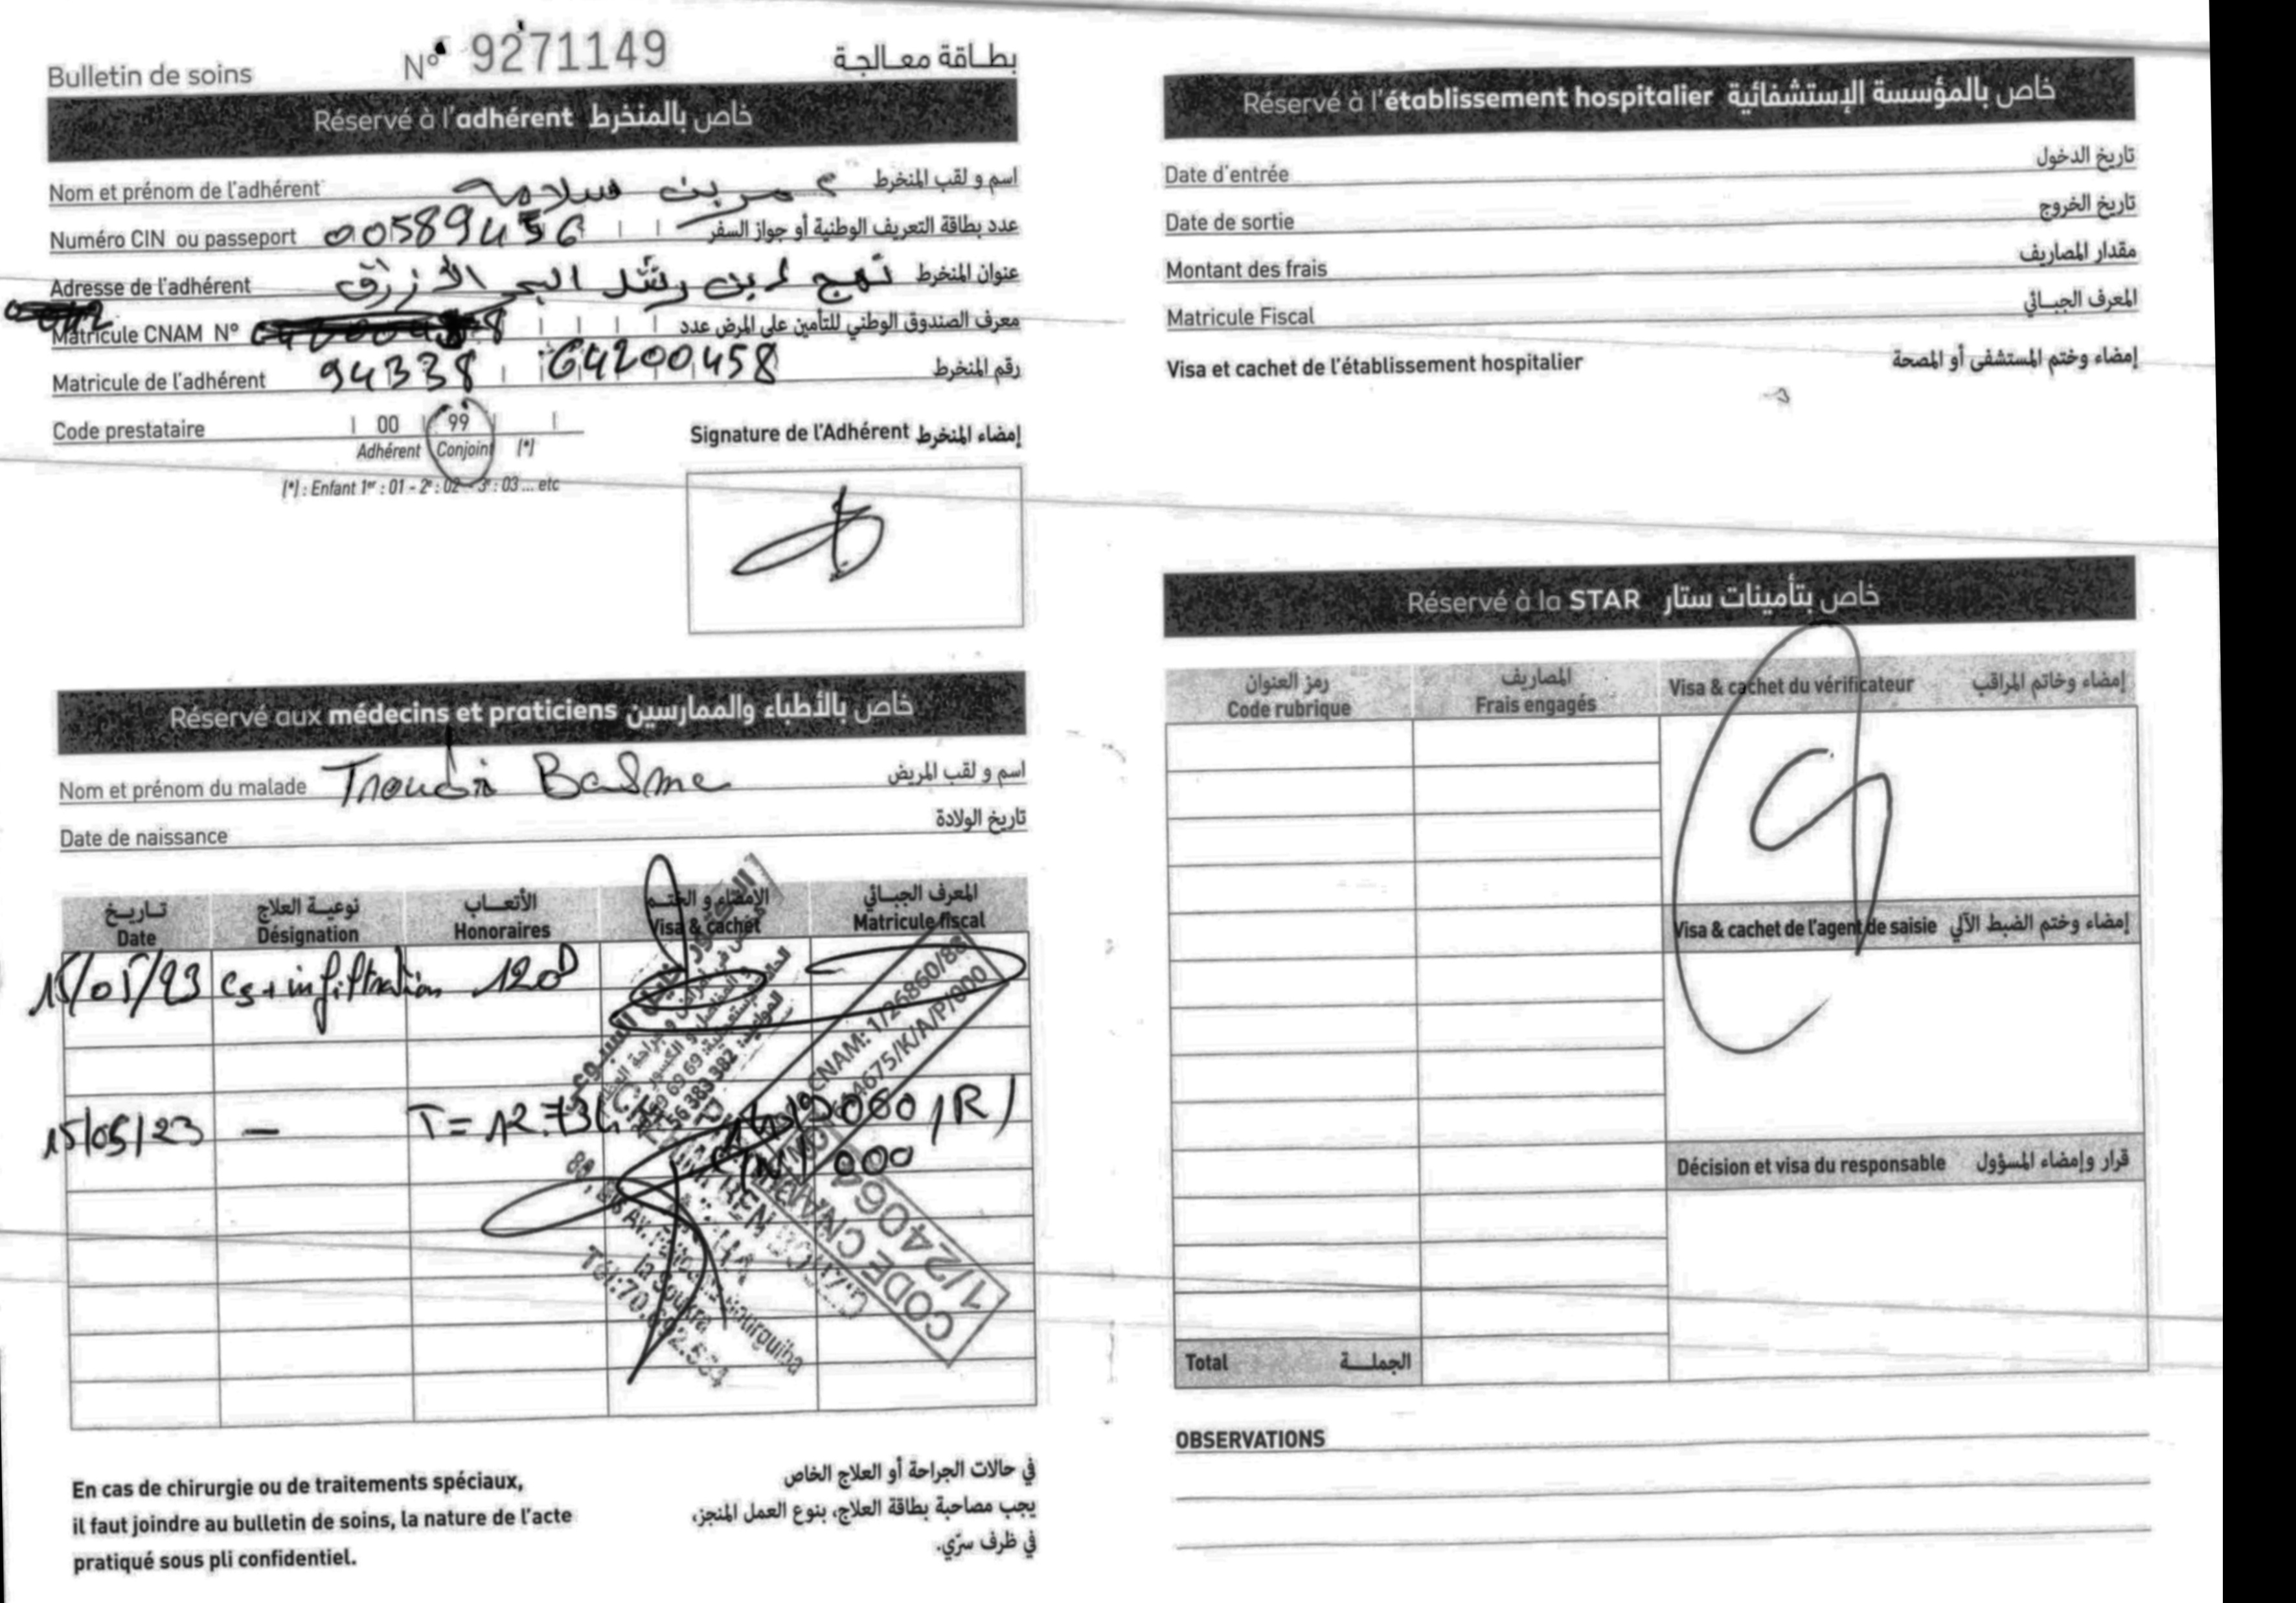 Bulletin de soins
N° 9271149
بطاقة معالجة
Réservé à l'adhérent خاص بالمنخرط
Nom et prénom de l'adhérent عمر بن سلامة اسم و لقب المنخرط
Numéro CIN ou passeport 00589456 عدد بطاقة التعريف الوطنية أو جواز السفر
Adresse de l'adhérent نهج ابن رشد البحر الأزرق عنوان المنخرط
Matricule CNAM N° معرف الصندوق الوطني للتأمين على المرض عدد
Matricule de l'adhérent 94338 64200458 رقم المنخرط
Code prestataire 00 99
Adhérent Conjoint (*)
(*) : Enfant 1er : 01 - 2e : 02 - 3e : 03 ... etc
Signature de l'Adhérent إمضاء المنخرط
Réservé aux médecins et praticiens خاص بالأطباء والممارسين
Nom et prénom du malade Troudi Basma اسم و لقب المريض
Date de naissance تاريخ الولادة
تاريخ نوعية العلاج الأتعاب الإمضاء و الختم المعرف الجبائي
Date Désignation Honoraires Visa & cachet Matricule fiscal
15/05/23 Cs + infiltration 120D
CNAM: 1/26860/88
4675/K/A/P/000
56 383 382
15/05/23 — T = 12.734
CODE CNAM
1/24064
Av.
la Soukra
En cas de chirurgie ou de traitements spéciaux,
il faut joindre au bulletin de soins, la nature de l'acte
pratiqué sous pli confidentiel.
في حالات الجراحة أو العلاج الخاص
يجب مصاحبة بطاقة العلاج، بنوع العمل المنجز،
في ظرف سرّي.
Réservé à l'établissement hospitalier خاص بالمؤسسة الإستشفائية
Date d'entrée تاريخ الدخول
Date de sortie تاريخ الخروج
Montant des frais مقدار المصاريف
Matricule Fiscal المعرف الجبائي
Visa et cachet de l'établissement hospitalier إمضاء وختم المستشفى أو المصحة
Réservé à la STAR خاص بتأمينات ستار
رمز العنوان المصاريف
Code rubrique Frais engagés
Visa & cachet du vérificateur إمضاء وخاتم المراقب
Visa & cachet de l'agent de saisie إمضاء وختم الضبط الآلي
Décision et visa du responsable قرار وإمضاء المسؤول
Total الجملة
OBSERVATIONS